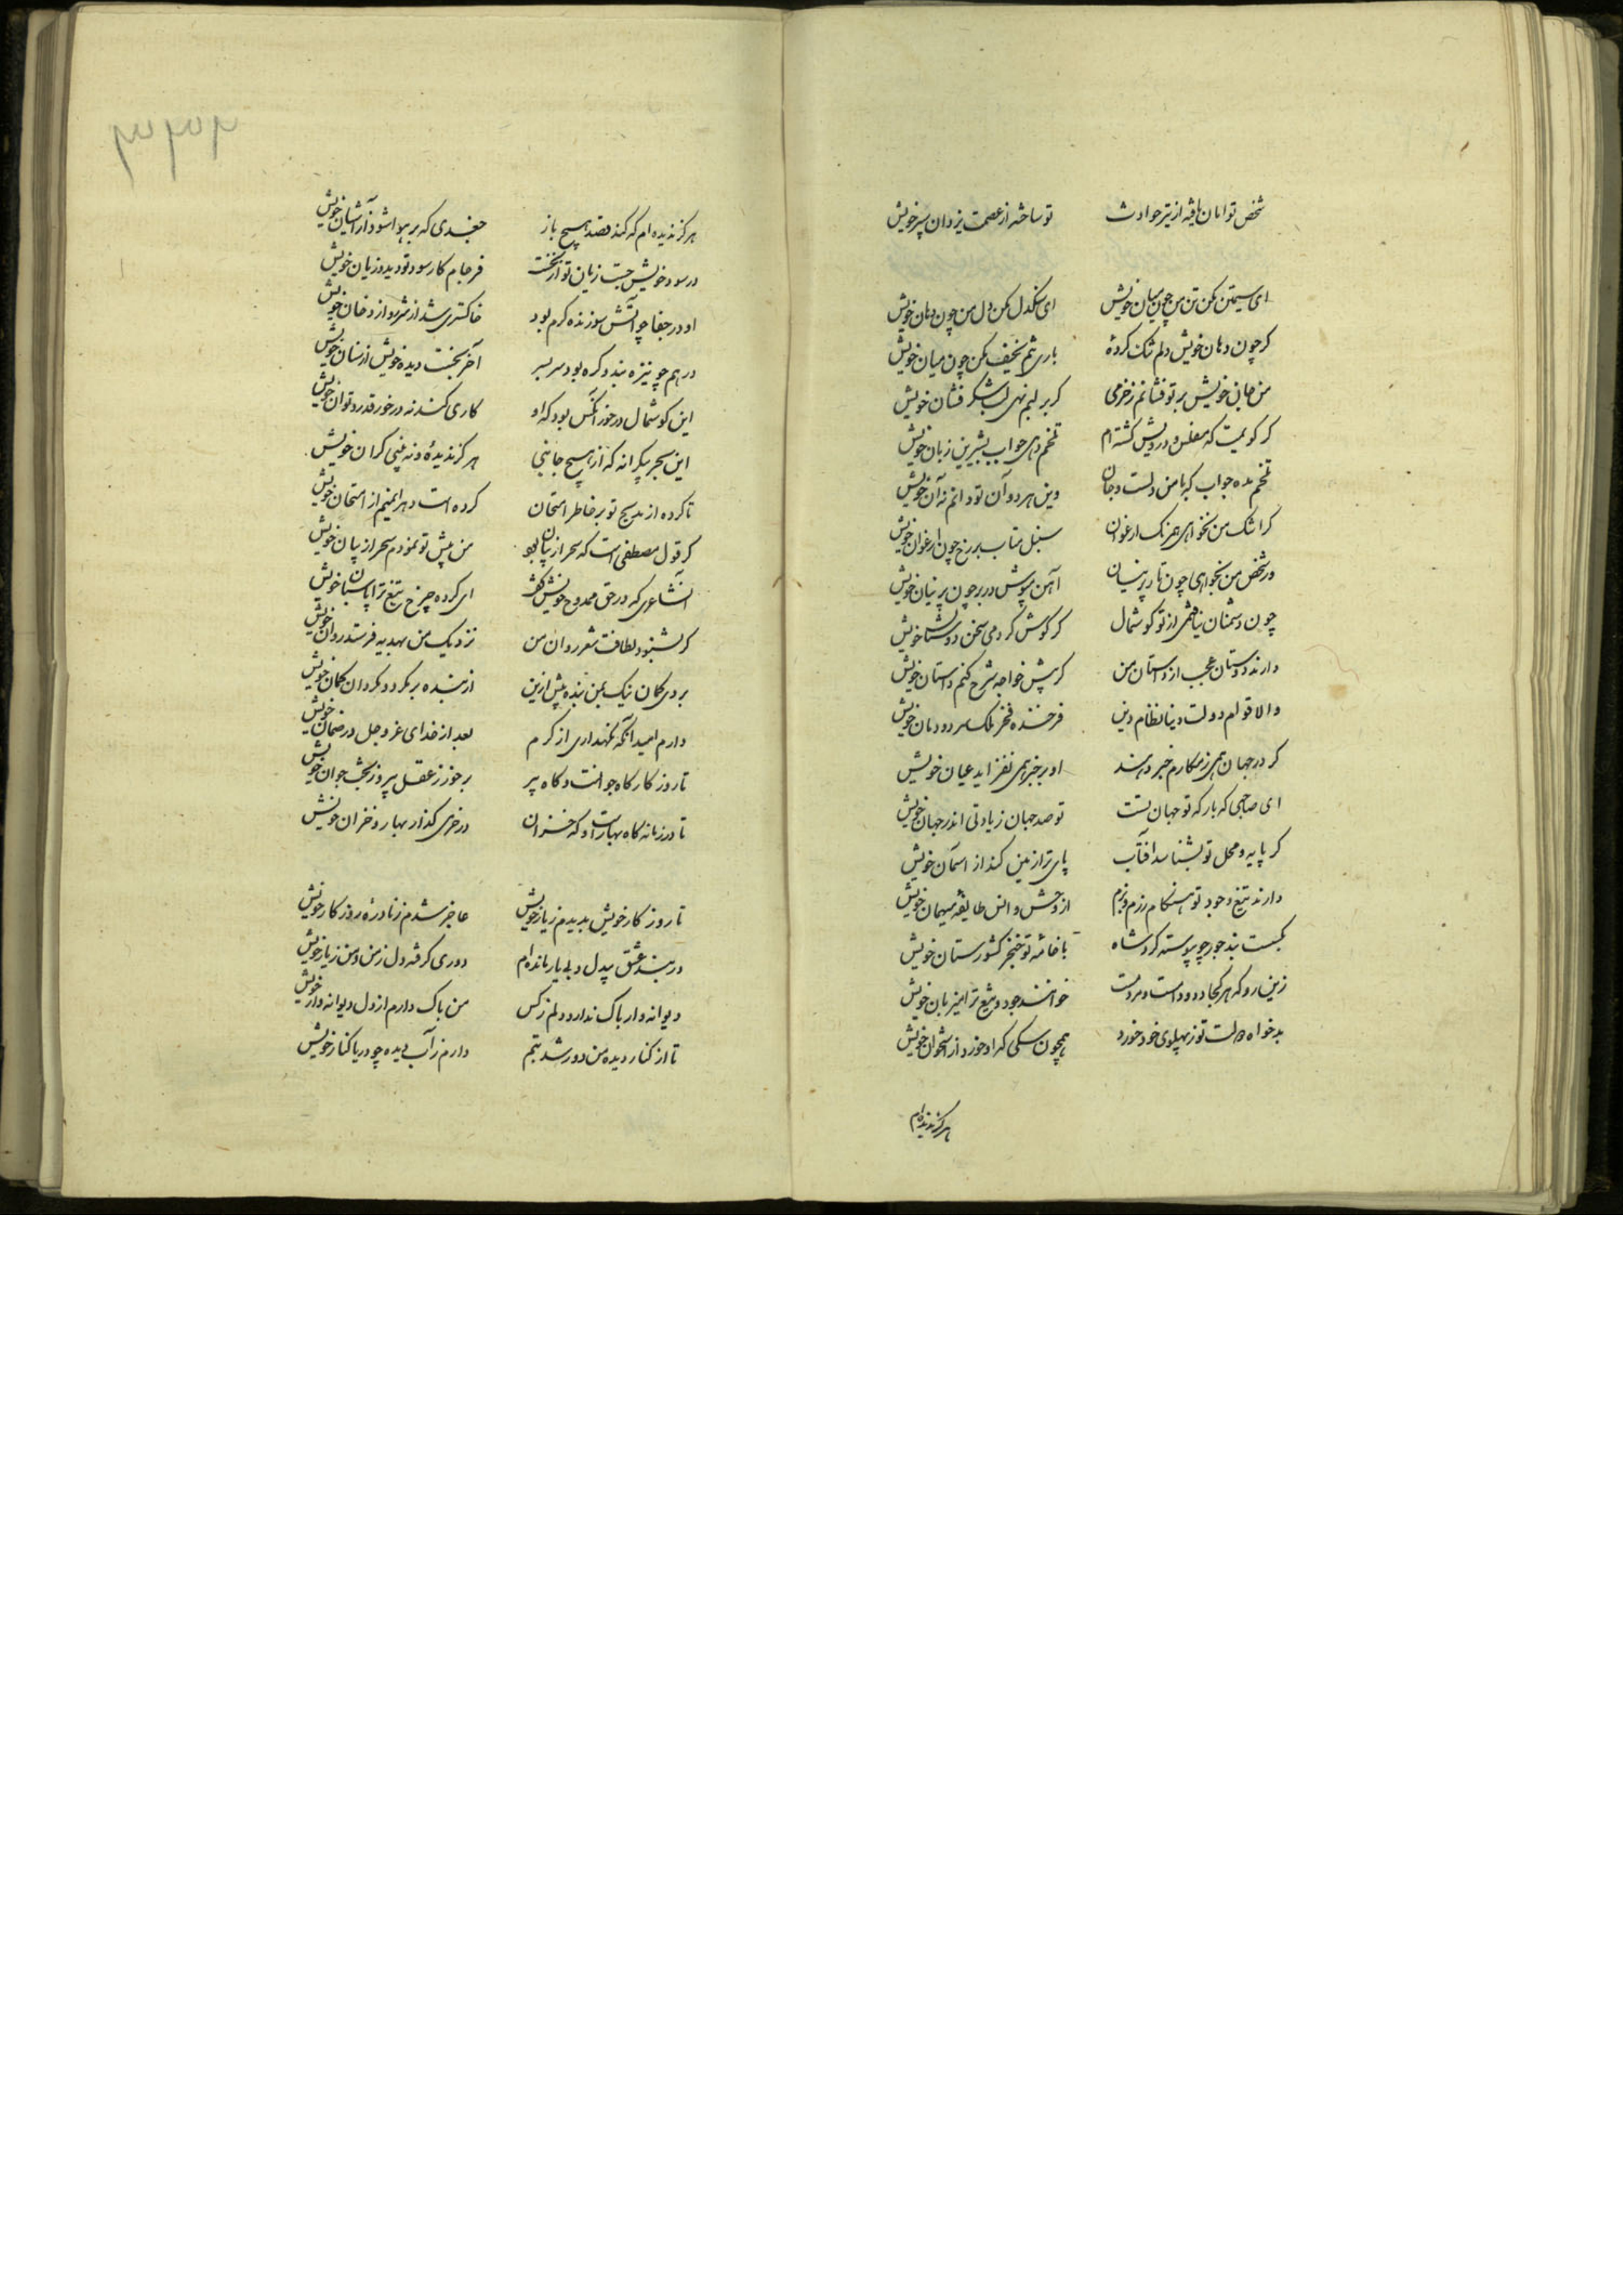 شخص تو امان یافته از تیر حوادث    تو ساخته از عصمت یزدان سپر خویش
ای سیمتن مکن تن من چون میان خویش    ای سنگدل مکن دل من چون دهان خویش
کر چون دهان خویش دلم تنک کردهٔ    باری تنم نحیف مکن چون میان خویش
من جان خویش بر تو فشانم ز خرمی    کر بر لبم نهی لب شکر فشان خویش
کر کویمت که مفلس و درویش کشته‌ام    تلخم دهی جواب بشیرین زبان خویش
تلخم مده جواب که با من دلست و جان    وین هر دو آن تو دانم نه آن خویش
کر اشک من نخواهی همرنک ارغوان    سنبل متاب بر رخ چون ارغوان خویش
ور شخص من نخواهی چون تار پرنیان    آهن مپوش در بر چون پرنیان خویش
چون دشمنان نیافتمی از تو کوشمال    کر کوش کردمی سخن دوستان خویش
دارند دوستان عجب از داستان من    کر پیش خواجه شرح کنم داستان خویش
والا قوام دولت و دنیا نظام دین    فرخنده فخر ملک و سر دودمان خویش
کر در جهان همی ز مکارم خبر دهند    او بر خبر همی بفزاید عیان خویش
ای صاحبی که بارکه تو جهان تست    تو صد جهان زیادتی اندر جهان خویش
کر پایه و محل تو بشناسد آفتاب    پای ترا زمین کند از آسمان خویش
دارند تیغ وجود تو هنکام رزم و بزم    از وحش و انس طایفهٔ میهمان خویش
بکسست بند جور چو پیوسته کرد شاه    با خامهٔ تو خنجر کشورستان خویش
زین رو که هر کجا دد و دام است و مردمست    خوانند جود و تیغ ترا میزبان خویش
بدخواه دولت تو ز پهلوی خود خورد    همچون سکی که او خورد از استخوان خویش
هرکز ندیده‌ام
۳۳۴
هرکز ندیده‌ام که کند قصد هیچ باز    جغدی که بر هوا شود از آشیان خویش
در سود خویش جست زیان تو از نخست    فرجام کار سود تو دید و زیان خویش
او در جفا چو آتش سوزنده کرم بود    خاکستری شد از شرر و از دخان خویش
در هم چو نیزه بند و کره بود سر بسر    آخر بخست دیده خویش از سنان خویش
این کوشمال در خور آنکس بود که او    کاری کند نه در خور قدر و توان خویش
این بحر بیکرانه که از هیچ جانبی    هرکز ندیدهٔ و نه بینی کران خویش
تا کرده از مدیح تو بر خاطر امتحان    کرده است دهر ایمنم از امتحان خویش
کر قول مصطفی است که سحر از بیان بود    من پیش تو نمودم سحر از بیان خویش
آنشاعری که در حق ممدوح خویش کفت    ای کرده چرخ تیغ ترا پاسبان خویش
کر بشنود لطافت شعر روان من    نزدیک من بهدیه فرستد روان خویش
بردی کمان نیک بمن بنده پیش ازین    از بنده بر مکرد و مکردان کمان خویش
دارم امید آنکه نکهداری از کرم    بعد از خدای عز و جل در ضمان خویش
تا روزکار کاه جوانست و کاه پیر    برخور ز عقل پیر و ز بخت جوان خویش
تا در زمانه کاه بهار است و که خزان    در خرمی کذار بهار و خزان خویش
تا روزکار خویش بدیدم ز یار خویش    عاجز شدم ز نادرهٔ روزکار خویش
در بند عشق بیدل و بی یار مانده‌ام    دوری کرفته دل ز من و من ز یار خویش
دیوانه وار باک ندارد دلم ز کس    من باک دارم از دل دیوانه وار خویش
تا از کنار دیده من دور شد بتم    دارم ز آب دیده چو دریا کنار خویش